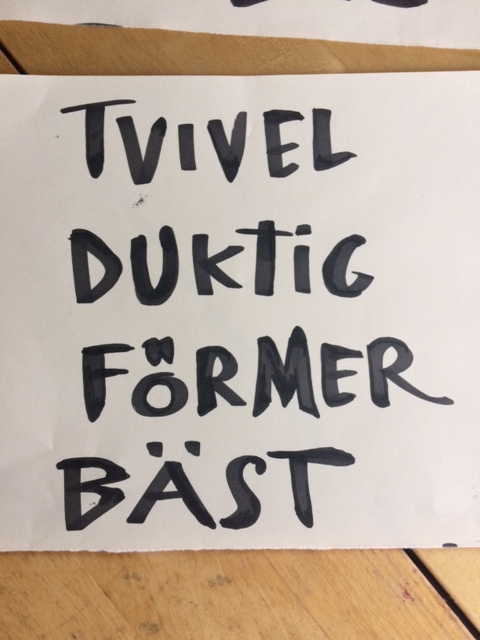 TVIVEL
DUKTiG
FÖRMER
BÄST